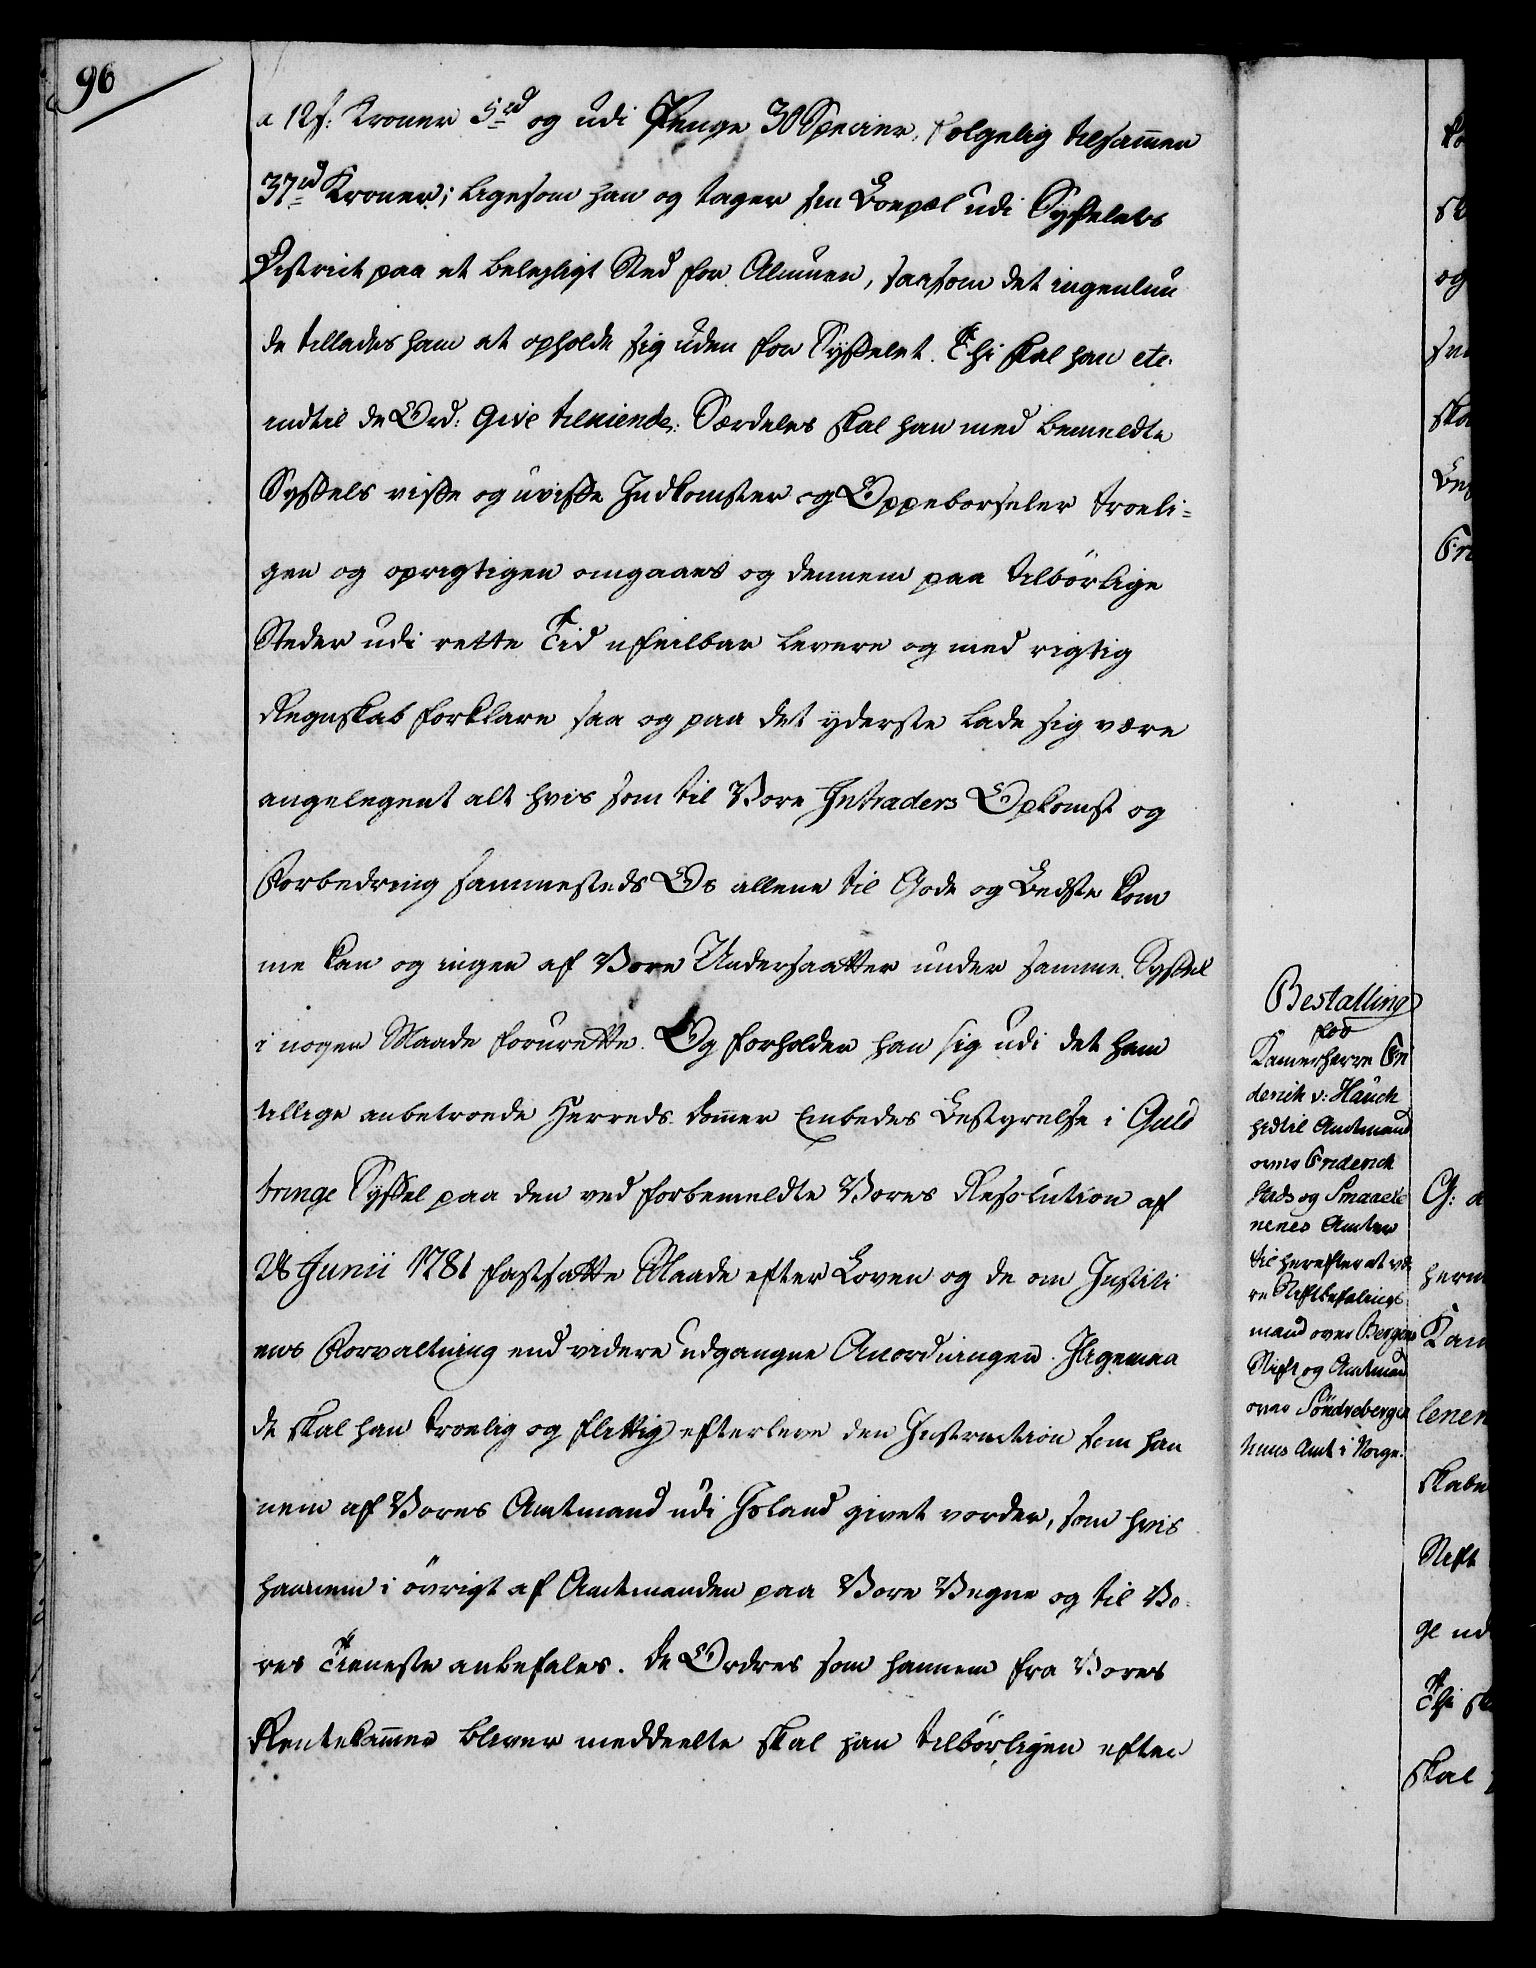 96
a 12 s: Kroner 5 rd og udi Penge 30 Specier, følgelig tilsammen
37 rd Kroner; ligesom han og tager sin Boepæl udi Sysselets
District paa et beleyligt Sted for Almuen, saasom det ingenlun
de tillades ham at opholde sig uden for Sysselet. Thi skal han etc.
indtil de Ord: Give tilkiende. Særdeles skal han med bemeldte
Syssels visse og uvisse Indkomster og Oppeborseler troeli-
gen og oprigtigen omgaaes og dennem paa tilbörlige
Steder udi rette Tid ufeilbar levere og med rigtig
Regnskab forklare saa og paa det yderste lade sig være
angelegent alt hvis som til Vore Intraders Opkomst og
Forbedring sammesteds Os allene til Gode og Bedste kom
me kan og ingen af Vore Undersaatter under samme Syssel
i nogen Maade forurette. Og forholder han sig udi det ham
tillige anbetroede Herreds dommer Embedes Bestyrelse i Guld
bringe Syssel paa den ved forbemeldte Vores Resolution af
28 Junii 1781 fastsatte Maade efter Loven og de om Justiti
ens Forvaltning end videre udgangne Anordninger. Iligemaa
de skal han troelig og flittig efterleve den Instruction som han
nem af Vores Amtmand udi Island givet vorder, som hvis
hannem i övrigt af Amtmanden paa Vore Vegne og til Vo-
res Tieneste anbefales. De Ordres som hannem fra Vores
Rentekammer bliver meddeelte skal han tilbörligen efter
Bestalling
for
Kammerherre Fri
derich v: Hauch
hidtil Amtmand
over Friderich
stads og Smaale
nenes Amter
til herefter at væ
re Stiftbefalings
mand over Bergens
Stift og Amtmand
over Söndrebergen
huus Amt i Norge.
og
G: a
Kam
lenen
skabe
Stift
ge ud
Thi sk
skal